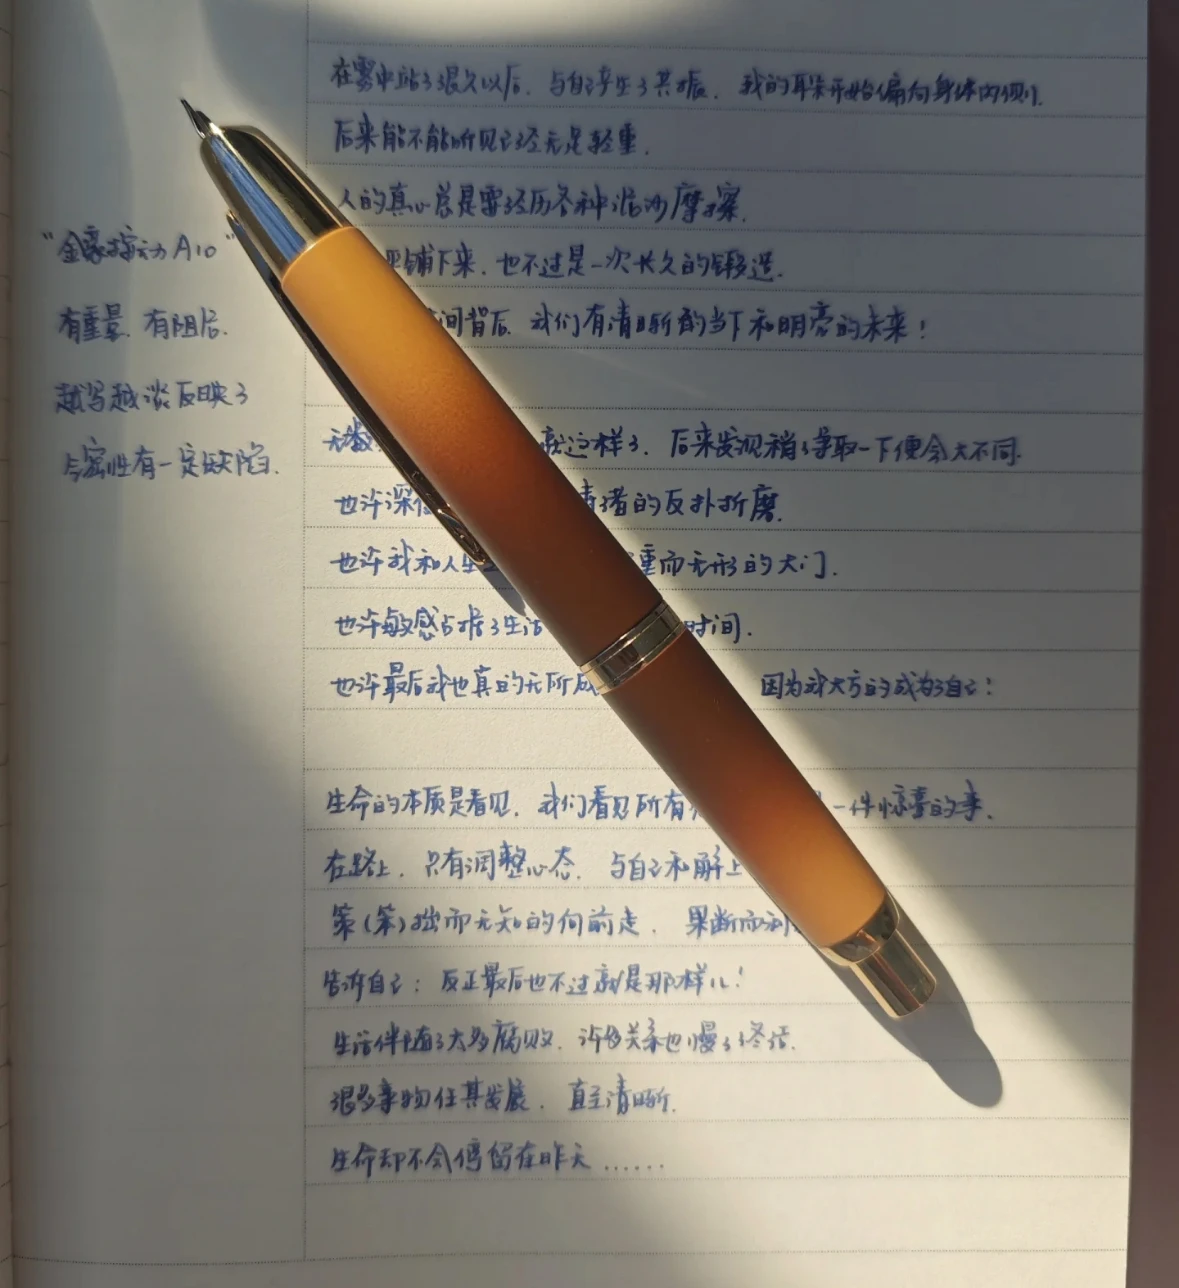 在雾中站了很久以后，与自己产生了共振，我的耳朵开始偏向身体内侧。
后来能不能听见已经无足轻重。
人的真心总是需经历各种泥沙摩擦，
铺下来，也不过是一次长久的锻造。
间背后，我们有清晰的当下和明亮的未来！
无数 就这样了，后来发现稍争取一下便会大不同。
也许深 者的反扑折磨。
也许我和人生 重而无形的大门。
也许敏感占据了生活 时间。
也许最后我也真的无所成 因为我大方的成为了自己！
生命的本质是看见，我们看见所有 一件惊喜的事。
在路上，只有调整心态，与自己和解上
策(笨)拙而无知的向前走，果断而利
告诉自己：反正最后也不过就是那样儿！
生活伴随了大多腐败，许多关系也慢了终结。
很多事物任其发展，直至清晰。
生命却不会停留在昨天……
"金豪按动A10"
有重量，有阻尼。
越写越淡反映了
气密性有一定缺陷。